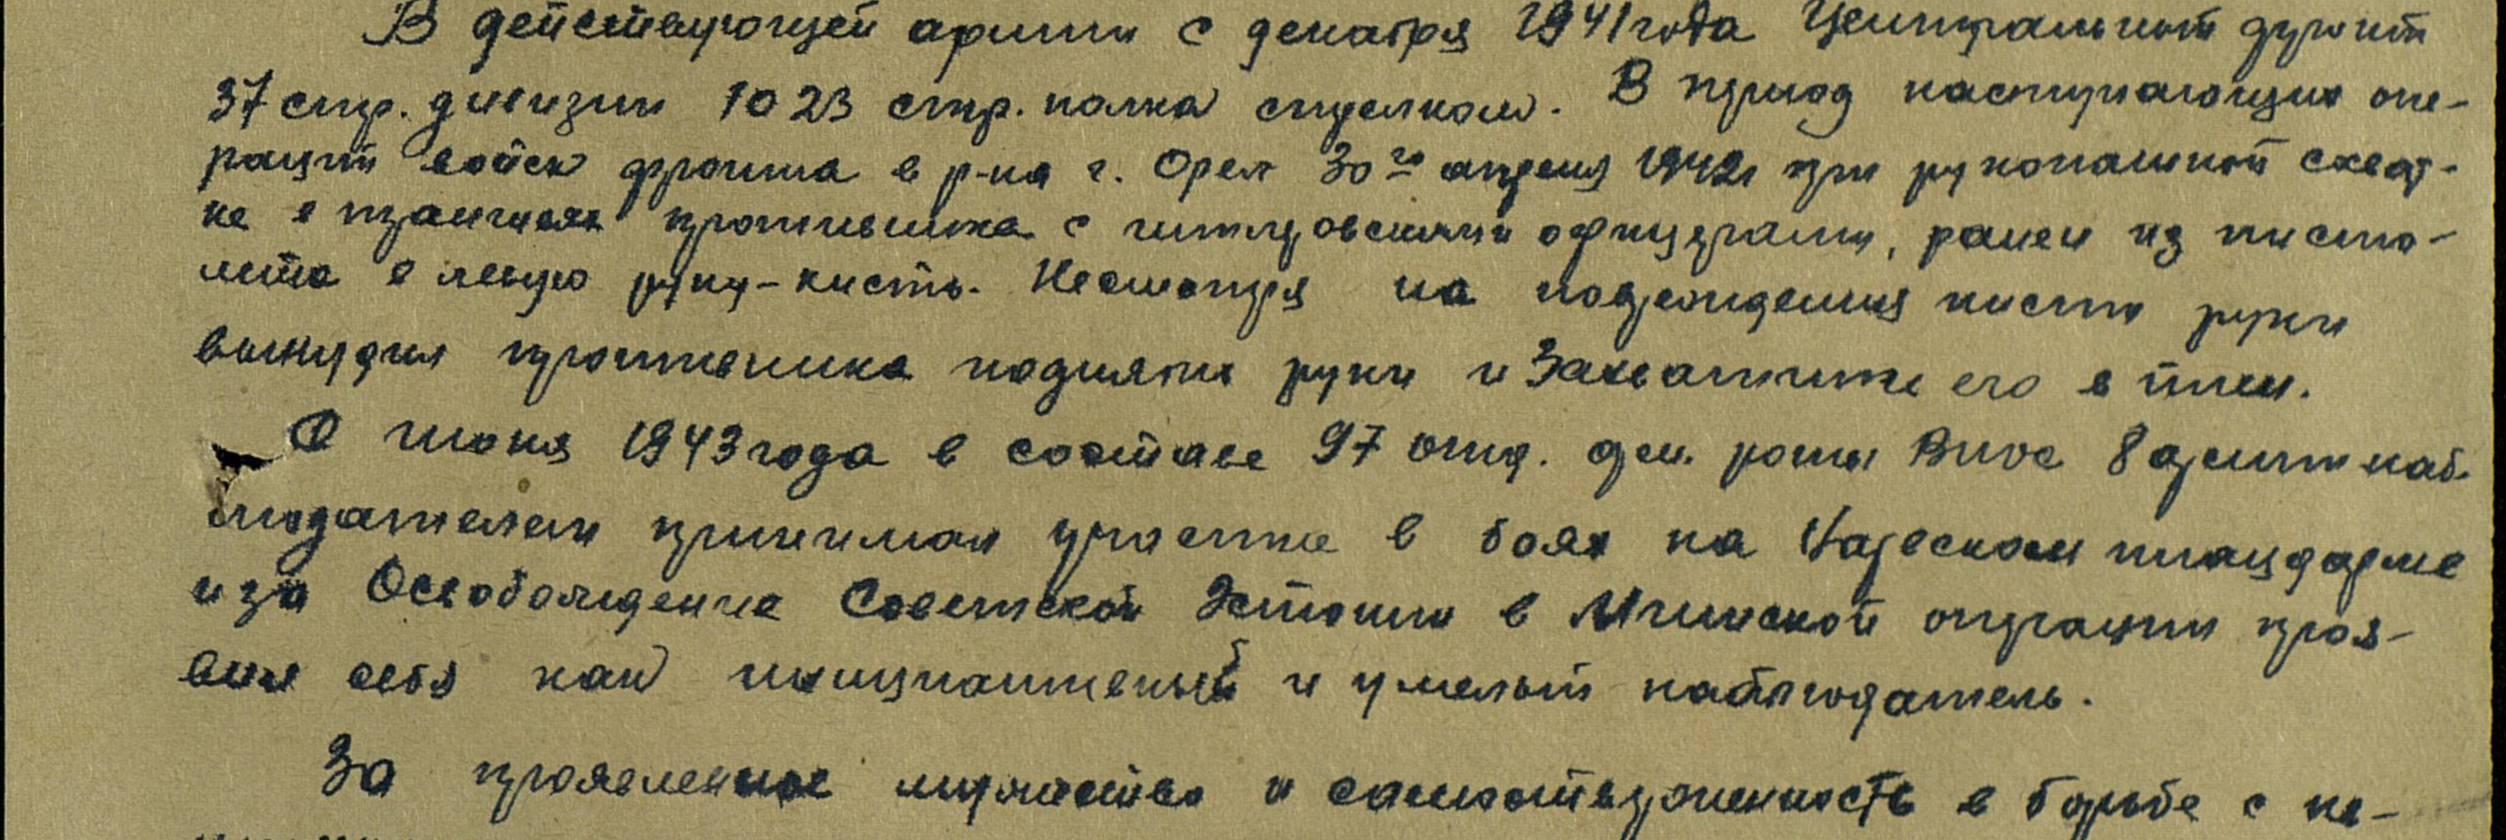 В действующей армии с декабря 1941 года Центральный фронт
37 стр. дивизии 1023 стр. полка стрелком. В период наступающих опе-
раций войск фронта в р-на г. Орел 30го апреля 1942г при рукопашной схват-
ке в траншеях противника с гитлеровскими офицерами, ранен из писто-
лета в левую руку-кисть. Несмотря на повреждения кисти руки
вынудил противника поднять руки и захватите его в плен.
С июня 1943 года в составе 97 отд. роты Внос 8 армии наб-
людателем принимал участие в боях на Нарвском плацдарме
и за Освобождение Советской Эстонии в Мгинской операции проя-
вил себя как инициативный и умелый наблюдатель.
За проявленное мужество и самоотверженность в борьбе с не-